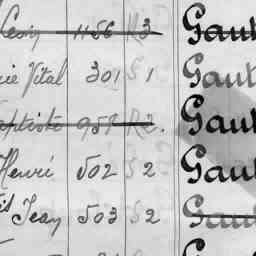 Léon 1156 R3 Gaut
rie Vital 301 S1 Gaut
aptiste 958 R2. Gaut
Henri 502 S2 Gaut
Jean 503 S2 Gaut